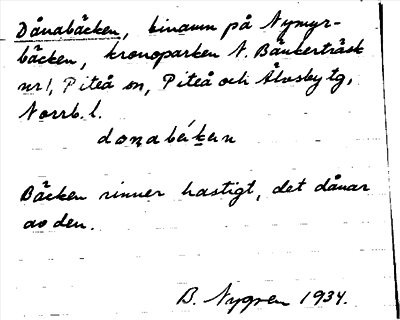 Dånabäcken, binamn på Nymyr-
bäcken, kronoparken N. Bänkerträsk
nr 1, Piteå sn, Piteå och Älvsby tg,
Norrb. l.
Bäcken rinner hastigt, det dånar
av den.
B. Nygren 1934.